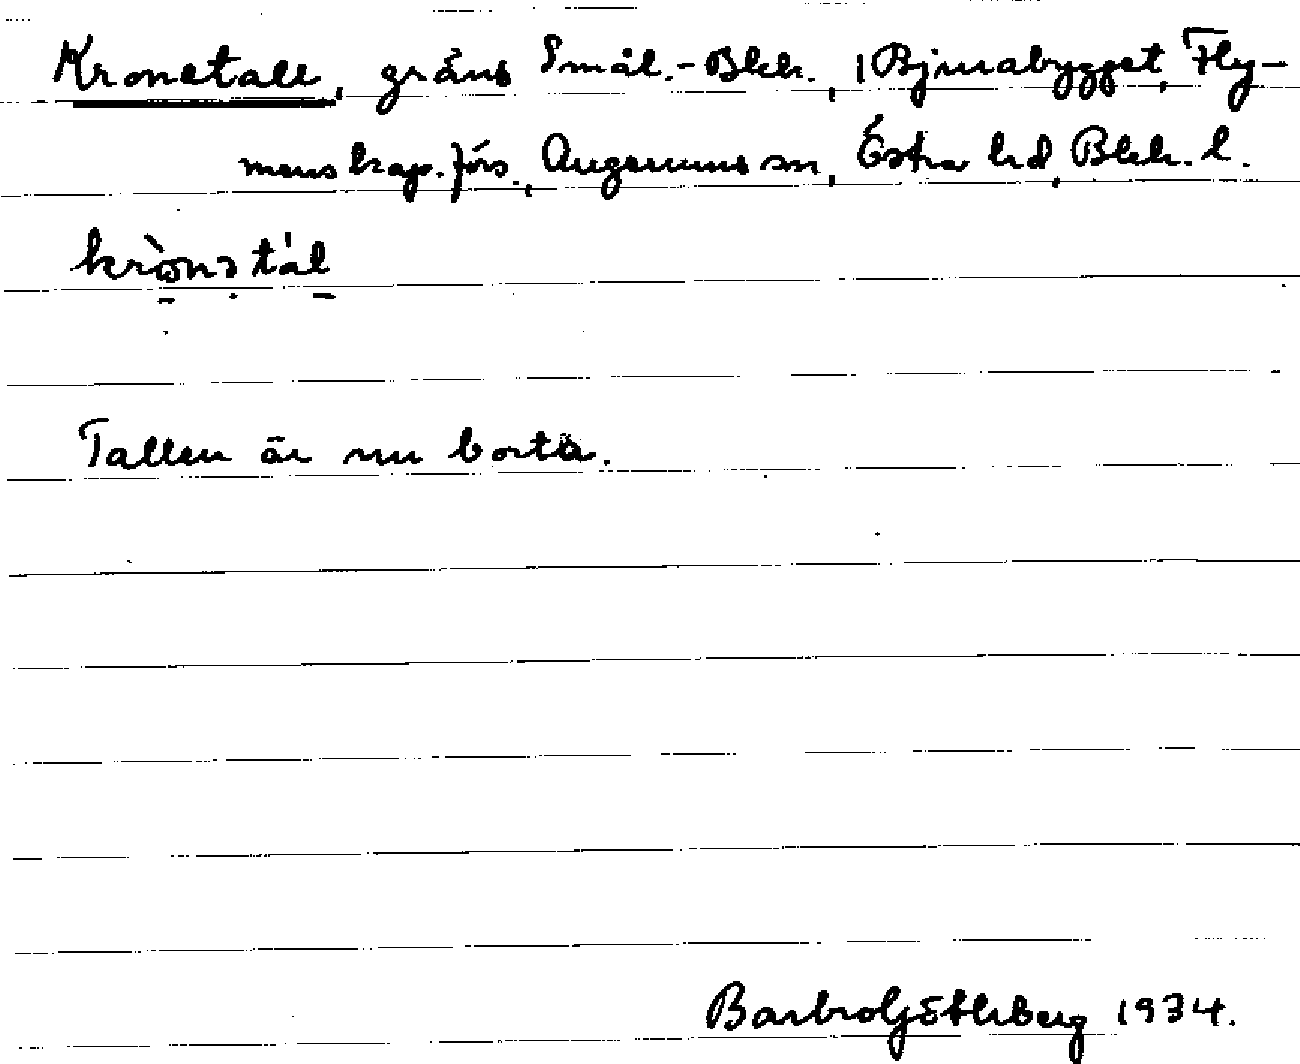 Kronetall, gräns Smål.-Blek., i Bjurabygget, Fly-
mens kap. förs., Augerums sn, Östra hd, Blek. l.
krònətál
Tallen är nu borta.
Barbro Götherberg 1934.